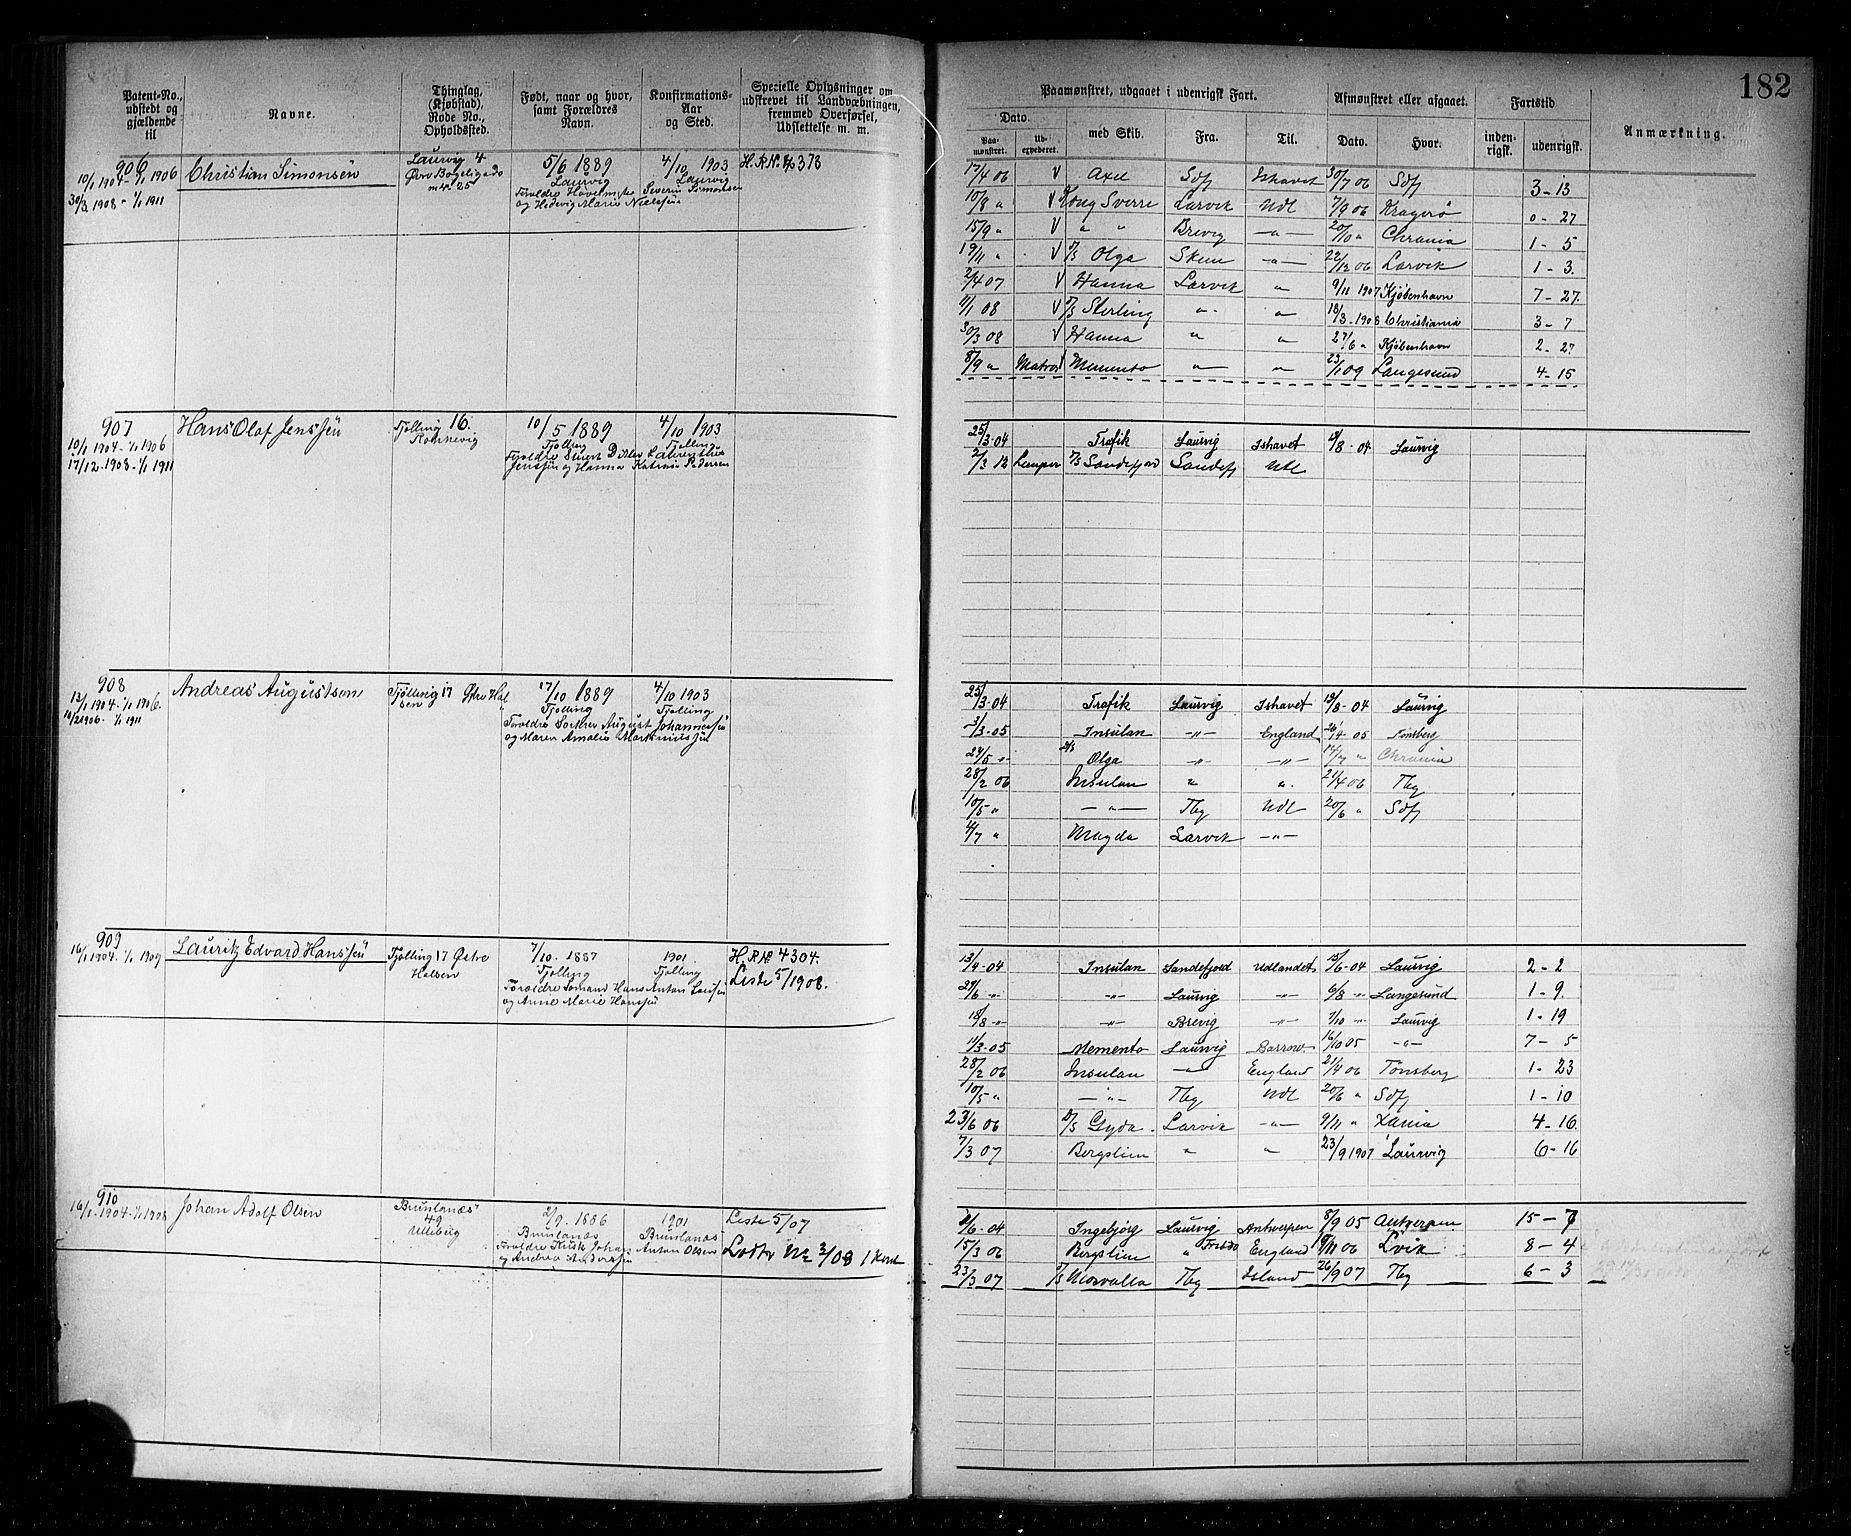 182
Patent-No., udstedt og gjældende til
Navne.
Thinglag, (Kjøbstad), Rode No., Opholdssted.
Født, naar og hvor, samt Forældres Navn.
Konfirmations- Aar og Sted.
Specielle Oplysninger om udskrevet til Landværbningen, fremmed Overførsel, Udslettelse m. m.
Paamønstret, udgaaet i udenrigsk Fart.
Afmønstret eller afgaaet.
Fartstid
Anmærkning.
Dato.
Paa- mønstret.
med Skib.
Fra.
Til.
Dato.
Hvor.
inden- rigsk.
udenrigsk.
906
10/1 1904 - 1/1 1906
30/3 1908 - 1/1 1911
Christian Simonsen
Laurvig 4
5/6 1889
Laurvig
og Hedvig Marie Nielsen
4/10 1903
Laurvig
Severin Simonsen
H.R.N. 4378
17/4 06 V Axel Sdfj Ishavet 30/7 06 Sdfj 3-13
10/8 " V Kong Sverre Larvik Udl 7/9 06 Kragerø 0-27
15/9 " V " " Brevig -"- 20/10 " Chrania 1-5
19/11 " V D/S Olga Skien -"- 22/12 06 Larvik 1-3
2/4 07 V Hanna Larvik " 9/11 1907 Kjøbenhavn 7-27
11/1 08 V D/S Sterling " " 18/3-1908 Christiania 3-7
30/3 08 V Hanna " " 27/6 " Kjøbenhavn 2-27
8/9 " Matros V Memento " " 23/1 09 Langesund 4-15
907
10/1 1904 - 1/1 1906
17/12-1908-1/1 1911
Hans Olaf Jenssen
Tjølling 16.
10/5 1889
Tjølling
Jenssen og Hanna Katrine Pedersen
4/10 1903
Tjølling
25/3-04 Trafik Laurvig Ishavet 19/8-04 Laurvig
2/3 12 Lemper D/S Sandefjord Sandefj Udl
908
12/1 1904-1/1 1906.
1906-1/1 1911
Andreas Augustsen
Tjølling 17 Østre Halsen
17/10 1889
Tjølling
og Maren Amalie Markmussen
4/10 1903
Tjølling
25/3-04 Trafik Laurvig Ishavet 19/8-04 Laurvig
3/3-05 Insulan -"- England 26/4-05 Tønsberg
24/5 -"- D/S Olga -"- -"- 14/7 " Chrania
28/2 06 Insulan " " 21/4 06 Tbg
10/5 " -"- Tbg Udl 20/6 " Sdfj
4/7 " Magda Larvik -"-
909
16/1 1904-1/1 1909
Lauritz Edvard Hanssen
Tjølling 17 Østre Halsen
7/10. 1887
Tjølling
Forældre Sømand Hans Anton Larssen
og Anne Marie Hanssen
1901
Tjølling
H.R.N. 4304.
Liste 5/1908.
13/4-04 Insulan Sandefjord Udlandet 15/6-04 Laurvig 2-2
27/6 -"- -"- Laurvig -"- 6/8 -"- Langesund 1-9.
18/8 -"- -"- Brevig -"- 7/10 -"- Laurvig 1-19
11/3-05 Memento Laurvig Barrow. 16/10 05 -"- 7-5
28/2 06 Insulan -"- England 21/4 06 Tønsberg 1-23
10/5 " -"- Tbg Udl 20/6 " Sdfj 1-10
23/6 06 D/S Gyda Larvik -"- 9/11 " Xania 4-16
7/3 07 Bergslien " " 23/9 1907 Laurvig 6-16
910
16/1-1904-1/1 1908
Johan Adolf Olsen
Brunlanæs
49
Ulleberg
2/9. 1886
Brunlanæs
Forældre Kusk Johan Anton Olsen
og Andrea Andersen
1901
Brunlanæs
Liste 5/07
Lodtr № 2/08
2/6-04 Ingebjørg Laurvig Antwerpen 8/9 05 Antwerpen 15-7
15/3 06 Bergslien " England 9/11 06 Lvik 8-4
23/3 07 D/S Mosvalla Tbg Island 26/9 07 Tbg 6-3